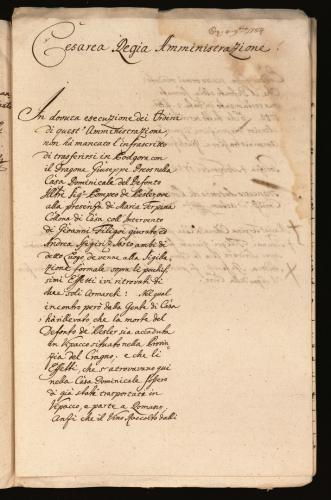 Cesarea Regia Amministrazione!
In dovuta esecuzione dei Ordini
di quest'Amministrazione,
non hà mancato l'infrascritto
di trasferirsi in Podgora con
il Dragona Giuseppe nella
Casa Dominicale del Defonto
Illmo Sigr Pompeo de
alla presenza di Maria
Colona di Casa coll'Intervento
di Giovanni Filigoi giurato, ed
Andrea Sarto ambi di
detto Luogo devenne alla Sigila-
zione formale sopra li pochis-
simi Effetti ivi ritrovati di
due soli Armareti: Nel qual
incontro però dalla Gente di Casa
hà rilevato che la morte del
Defonto de sia accaduta
in Vipacco situato nella Provin-
zia del Cragno, e che li
Effetti, che s'atrovavano qui
nella Casa Dominicale fossero
di già stati trasportati in
Vipacco, e parte a
Anzi che il Vino Raccolto dalli